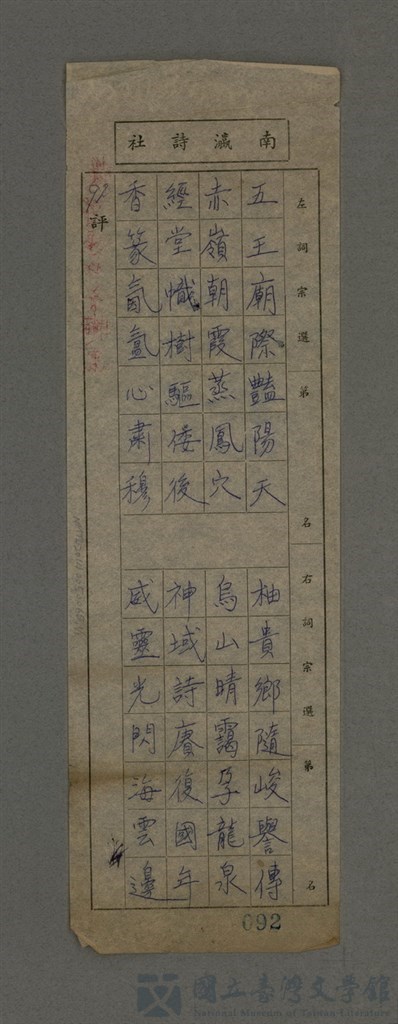 南瀛詩社
左詞宗選 第 名
右詞宗選 第 名
五王廟際豔陽天 柚貴鄉隨峻譽傳
赤嶺朝霞蒸鳳穴 烏山晴靄孕龍泉
經堂幟樹驅倭後 神域詩賡復國年
香篆氤氳心肅穆 威靈光閃海雲邊
92評
092
國立臺灣文學館
National Museum of Taiwan Literature